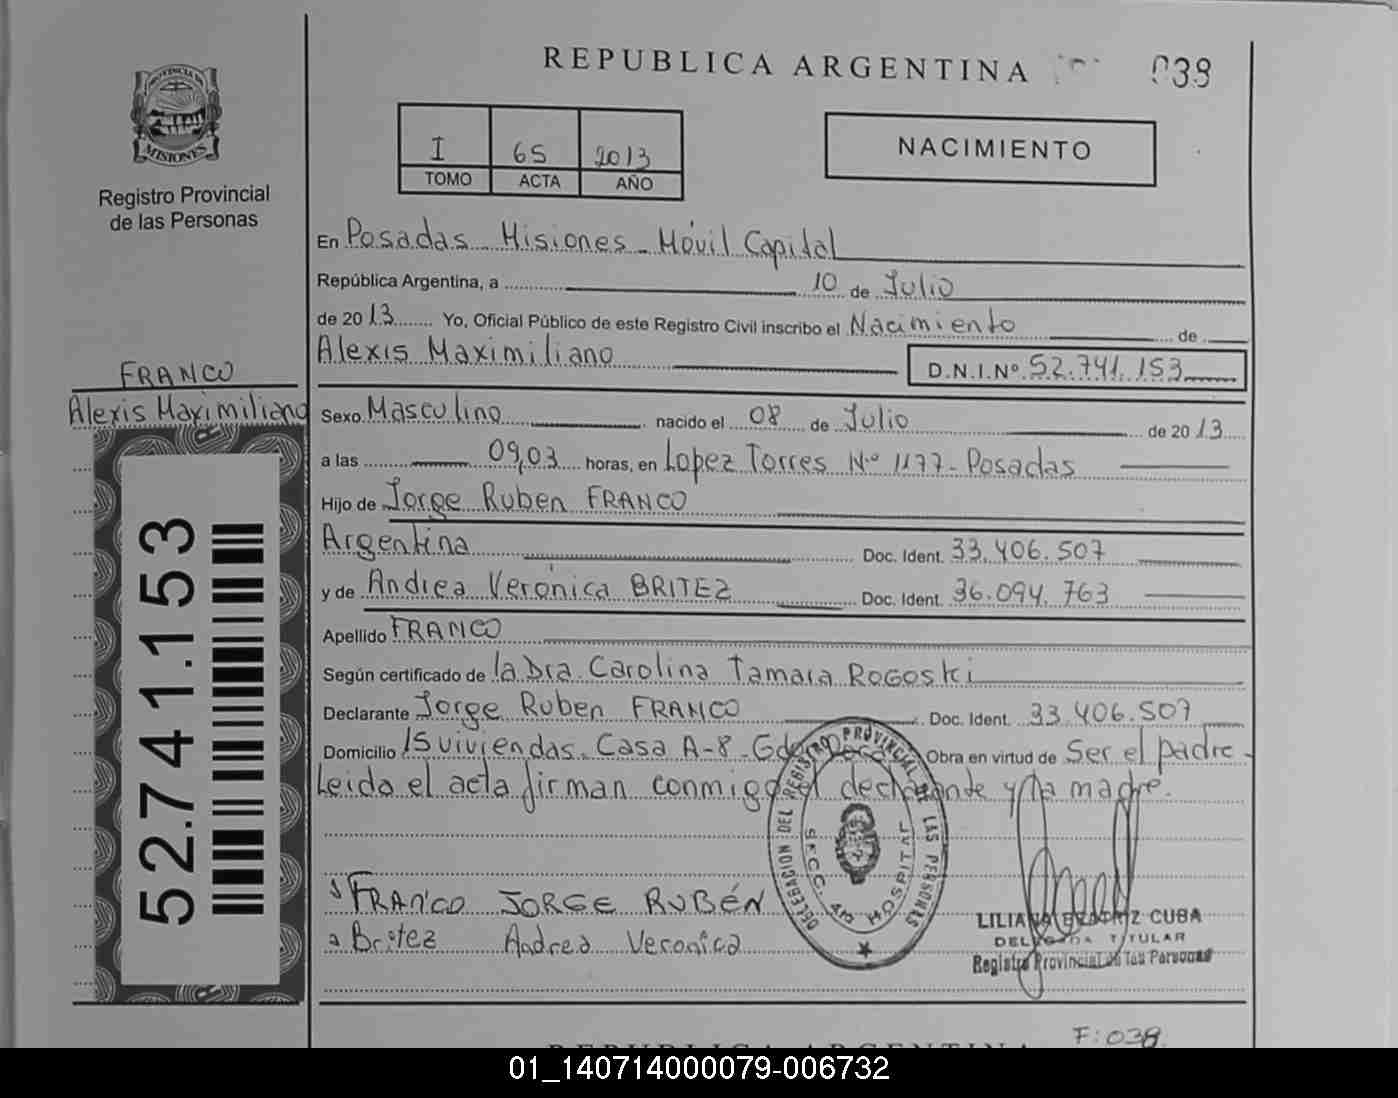 REPUBLICA ARGENTINA
038
PROVINCIA DE
MISIONES
Registro Provincial
de las Personas
I 65 2013
TOMO ACTA AÑO
NACIMIENTO
En Posadas Misiones - Móvil Capital
República Argentina, a 10 de Julio
de 2013 Yo, Oficial Público de este Registro Civil inscribo el Nacimiento de
Alexis Maximiliano
D.N.I.Nº 52.741.153
FRANCO
Alexis Maximiliano
52.741.153
Sexo Masculino nacido el 08 de Julio de 2013
a las 09,03 horas, en Lopez Torres Nº 1177 - Posadas
Hijo de Jorge Ruben FRANCO
Argentina Doc. Ident. 33.406.507
y de Andrea Verónica BRITEZ Doc. Ident. 36.094.763
Apellido FRANCO
Según certificado de la Dra. Carolina Tamara ROGOSKi
Declarante Jorge Ruben FRANCO Doc. Ident. 33.406.507
Domicilio 15 viviendas. Casa A-8 - Obra en virtud de Ser el padre -
Leida el acta firman conmigo el declarante y la madre.
DELEGACION DEL REGISTRO PROVINCIAL DE LAS PERSONAS
SECC. 4ta HOSPITAL
FRANCO JORGE RUBÉN
Britez Andrea Veronica
LILIANA BEATRIZ CUBA
DELEGADA TITULAR
Registro Provincial de las Personas
F: 038
REPUBLICA ARGENTINA
01_140714000079-006732